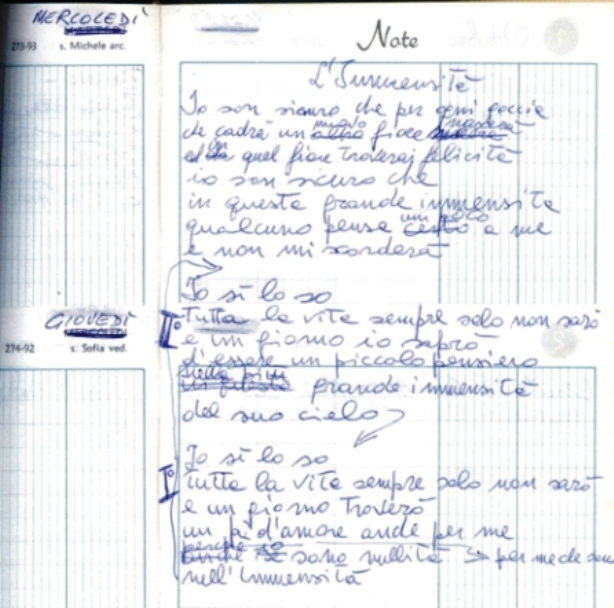 MERCOLEDÌ
273-93 s. Michele arc.
Note
L'Immensità
Io son sicuro che per ogni goccia
che cadrà un altro nuovo fiore nascerà
ed su quel fiore troverai felicità
io son sicuro che
in questa grande immensità
qualcuno pensa certo un poco a me
e non mi scorderà
Io sì lo so
GIOVEDÌ
274-92 s. Sofia ved.
IIº
Tutta la vita sempre solo non sarò
e un giorno io saprò
d'essere un piccolo pensiero
nella più
grande immensità
del suo cielo
Io sì lo so
Iº
tutta la vita sempre solo non sarò
e un giorno troverò
un pò d'amore anche per me
perché
sono nullità per me che sono
nell'Immensità